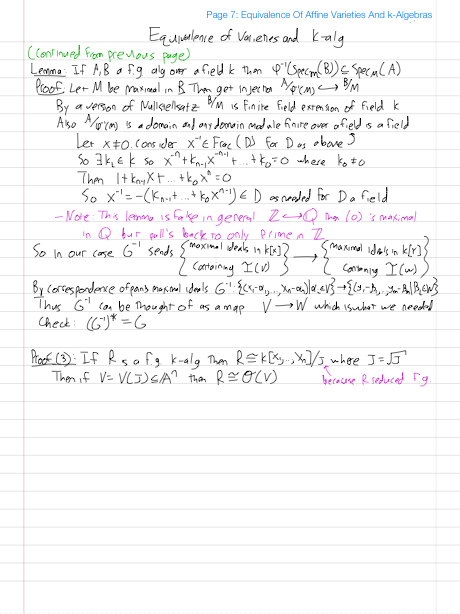 Page 7: Equivalence Of Affine Varieties And k-Algebras
Equivalence of Varieties and k-alg
(continued from previous page)
Lemma: If A,B a f.g alg over a field k then φ⁻¹(Specm(B)) ⊆ Specm(A)
Proof: Let M be maximal in B. Then get injection A/φ⁻¹(m) ↪ B/M
By a version of Nullstellsatz B/M is finite field extension of field k
Also A/φ⁻¹(m) is a domain and any domain module finite over a field is a field
Let x≠0. Consider x⁻¹ ∈ Frac(D) for D as above
So ∃ kᵢ ∈ k so x⁻ⁿ + kₙ₋₁x⁻ⁿ⁻¹ + ... + k₀ = 0 where k₀ ≠ 0
Then 1 + kₙ₋₁x + ... + k₀xⁿ = 0
So x⁻¹ = -(kₙ₋₁ + ... + k₀xⁿ⁻¹) ∈ D as needed for D a field
- Note: This lemma is false in general ℤ ↪ ℚ then (0) is maximal
in ℚ but pull's back to only prime in ℤ
So in our case G⁻¹ sends {maximal ideals in k[x] containing I(V)} → {maximal ideals in k[Y] containing I(W)}
By correspondence of points maximal ideals G⁻¹: {(x₁-α₁,..., xₙ-αₙ)|αᵢ∈V} → {(y₁-β₁,..., yₘ-βₘ)|βᵢ∈W}
Thus G⁻¹ can be thought of as a map V → W which is what we needed
Check: (G⁻¹)* = G
Proof (3): If R is a f.g k-alg then R ≅ k[x₁,...,xₙ]/J where J = √J
Then if V = V(J) ⊆ 𝔸ⁿ then R ≅ O(V)
because R reduced f.g.